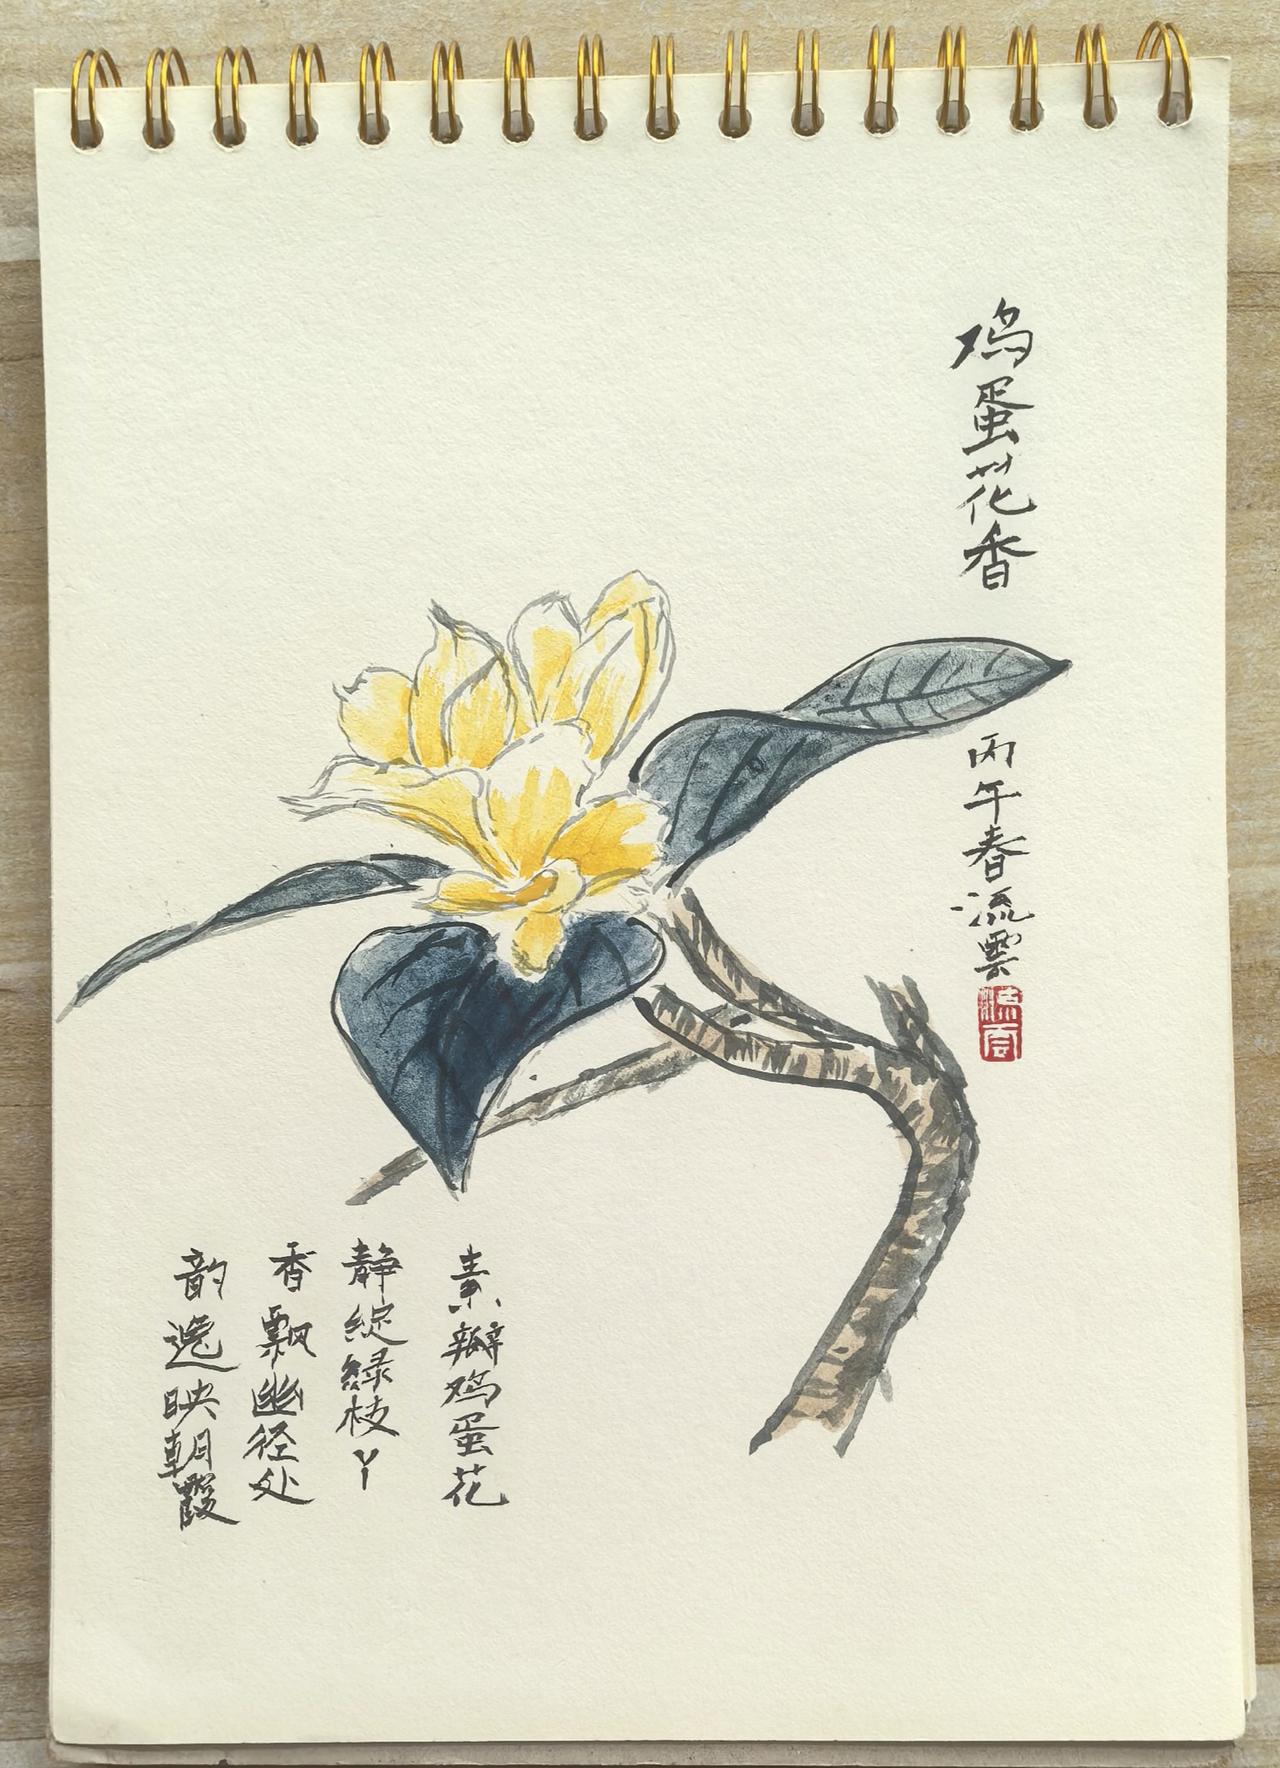 鸡蛋花香
丙午春流雲
流雲
素瓣鸡蛋花
静绽緑枝丫
香飘幽径处
韵逸映朝霞